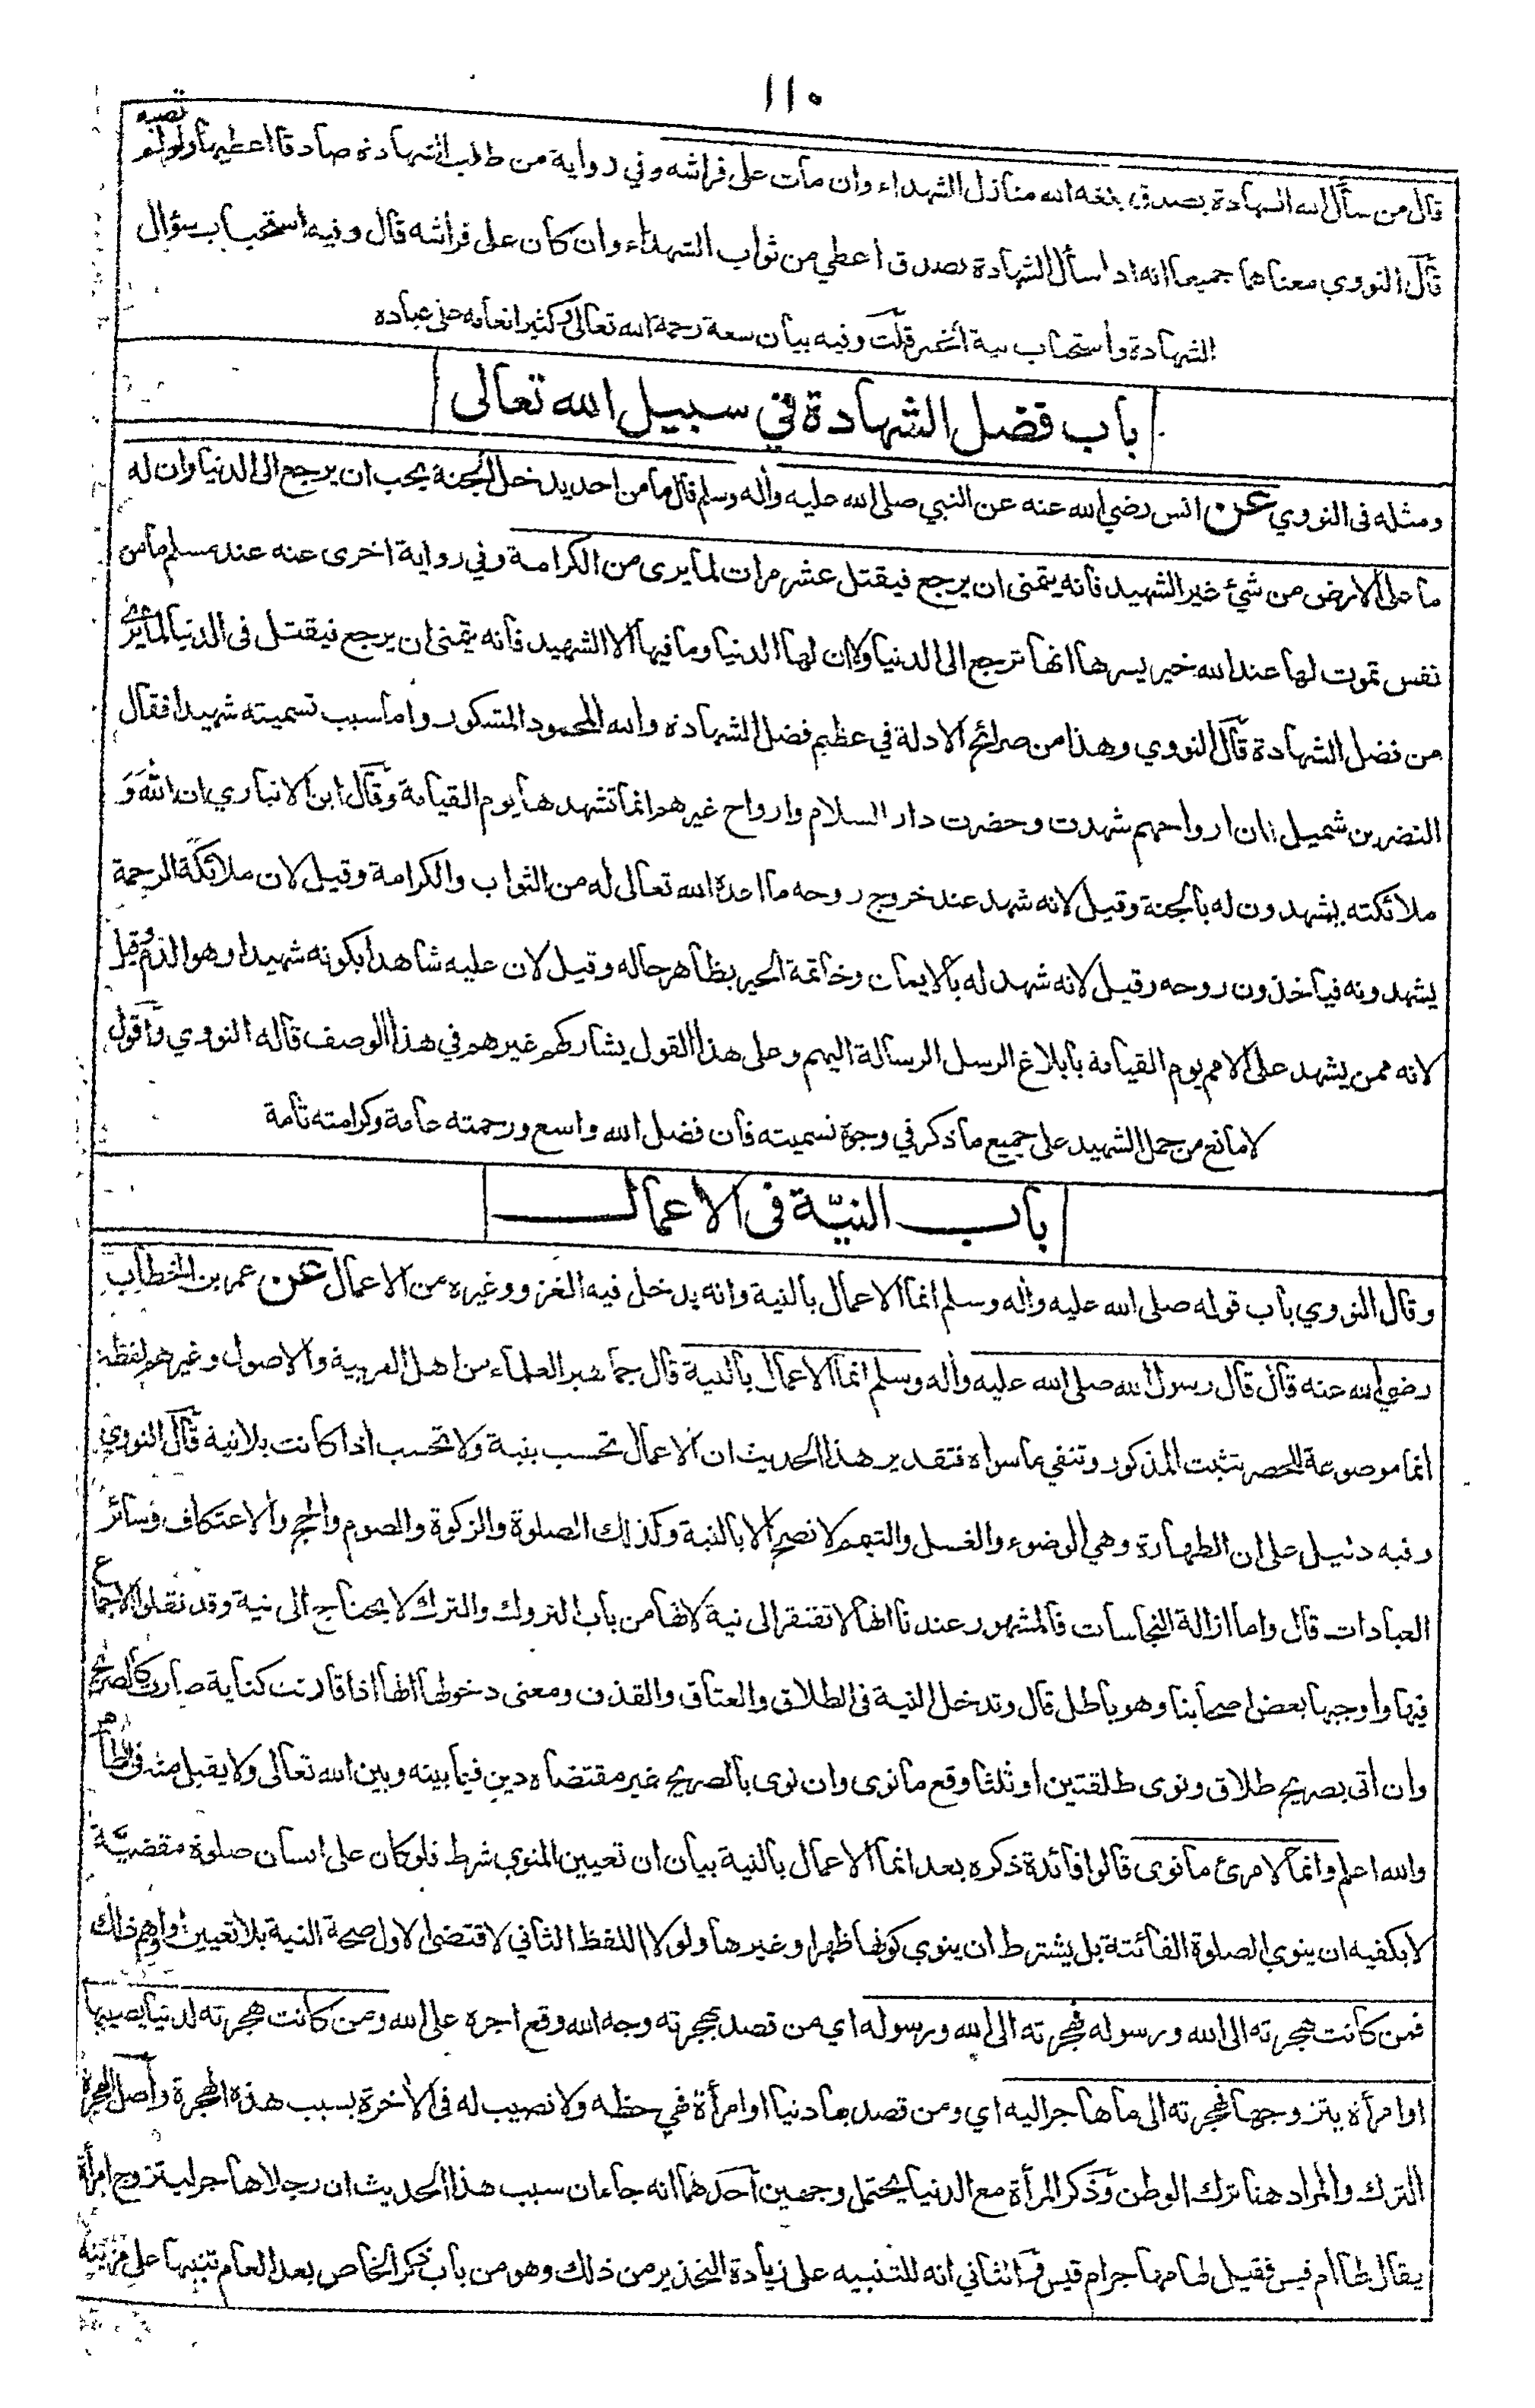 ١١٠
قال من سأل الله الشهادة بصدق بلغه الله منازل الشهداء وان مات على فراشه وفي رواية من طلب الشهادة صادقا اعطيها ولو لم تصبه
قال النووي معناهما جميعا انه اذا سأل الشهادة بصدق اعطي من ثواب الشهداء وان كان على فراشه قال وفيه استحباب سؤال
الشهادة واستحباب نية الخير قلت وفيه بيان سعة رحمة الله تعالى وكثير انعامه على عباده
باب فضل الشهادة في سبيل الله تعالى
ومثله فى النووي عن انس رضي الله عنه عن النبي صلى الله عليه وأله وسلم قال ما من احد يدخل الجنة يحب ان يرجع الى الدنيا وان له
ما على الارض من شئ غير الشهيد فانه يتمنى ان يرجع فيقتل عشر مرات لما يرى من الكرامة وفي رواية اخرى عنه عند مسلم ما من
نفس تموت لها عند الله خير يسرها انها ترجع الى الدنيا ولا ان لها الدنيا وما فيها الا الشهيد فانه يتمنى ان يرجع فيقتل فى الدنيا لما يرى
من فضل الشهادة قال النووي وهذا من صرائح الادلة في عظيم فضل الشهادة والله المحمود المشكور واما سبب تسميته شهيدا فقال
النضر بن شميل ان ارواحهم شهدت وحضرت دار السلام وارواح غيرهم انما تشهدها يوم القيامة وقال ابن الانباري ان الله و
ملائكته يشهدون له بالجنة وقيل لانه شهد عند خروج روحه ما اعده الله تعالى له من الثواب والكرامة وقيل لان ملائكة الرحمة
يشهدونه فياخذون روحه وقيل لانه شهد له بالايمان وخاتمة الخير بظاهر حاله وقيل لان عليه شاهدا بكونه شهيدا وهو الدم وقيل
لانه ممن يشهد على الامم يوم القيامة بابلاغ الرسل الرسالة اليهم وعلى هذا القول يشاركهم غيرهم في هذا الوصف قاله النووي واقول
لا مانع من حمل الشهيد على جميع ما ذكر في وجوه تسميته فان فضل الله واسع ورحمته عامة وكرامته تامة
باب النيّة فى الاعمال
وقال النووي باب قوله صلى الله عليه وأله وسلم انما الاعمال بالنية وانه يدخل فيه الغزو وغيره من الاعمال عن عمر بن الخطاب
رضي الله عنه قال قال رسول الله صلى الله عليه وأله وسلم انما الاعمال بالنية قال جماهير العلماء من اهل العربية والاصول وغيرهم لفظة
انما موضوعة للحصر تثبت المذكور وتنفي ما سواه فتقدير هذا الحديث ان الاعمال تحسب بنية ولا تحسب اذا كانت بلا نية قال النووي
وفيه دليل على ان الطهارة وهي الوضوء والغسل والتيمم لا تصح الا بالنية وكذلك الصلوة والزكوة والصوم والحج والاعتكاف وسائر
العبادات قال واما ازالة النجاسات فالمشهور عندنا انها لا تفتقر الى نية لانها من باب التروك والترك لا يحتاج الى نية وقد نقلوا الاجماع
فيها واوجبها بعض اصحابنا وهو باطل قال وتدخل النية فى الطلاق والعتاق والقذف ومعنى دخولها انها اذا قارنت كناية صارت كالصريح
وان اتى بصريح طلاق ونوى طلقتين او ثلثا وقع ما نوى وان نوى بالصريح غير مقتضاه دين فيما بينه وبين الله تعالى ولا يقبل منه فى الظاهر
والله اعلم وانما لامرئ ما نوى قالوا فائدة ذكره بعد انما الاعمال بالنية بيان ان تعيين المنوي شرط فلو كان على انسان صلوة مقضيّة
لا يكفيه ان ينوي الصلوة الفائتة بل يشترط ان ينوي كونها ظهرا وغيرها ولولا اللفظ الثاني لاقتضى الاول صحة النية بلا تعيين او اوهم ذلك
فمن كانت هجرته الى الله ورسوله فهجرته الى الله ورسوله اي من قصد بهجرته وجه الله وقع اجره على الله ومن كانت هجرته لدنيا يصيبها
او امرأة يتزوجها فهجرته الى ما هاجر اليه اي ومن قصد بها دنيا او امرأة فهي حظه ولا نصيب له فى الأخرة بسبب هذه الهجرة واصل الهجرة
الترك والمراد هنا ترك الوطن وذكر المرأة مع الدنيا يحتمل وجهين احدهما انه جاء ان سبب هذا الحديث ان رجلا هاجر ليتزوج امرأة
يقال لها ام قيس فقيل له مهاجر ام قيس والثاني انه للتنبيه على زيادة التحذير من ذلك وهو من باب ذكر الخاص بعد العام تنبيها على مزيته